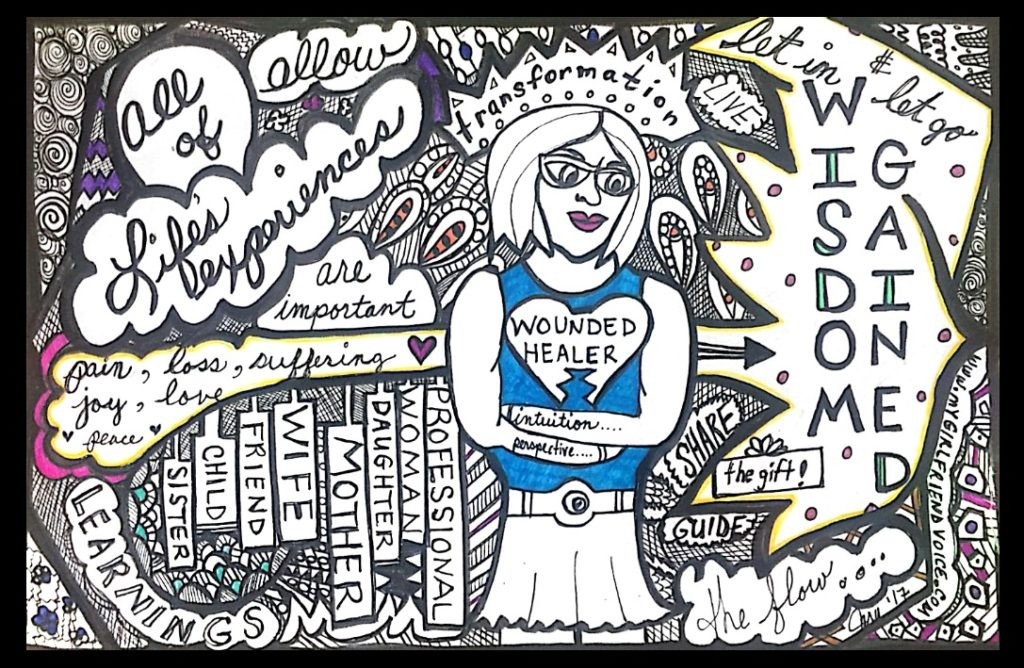 All
of
allow
Life's
experiences
are
important
pain, loss, suffering
joy, love
peace
LEARNINGS
SISTER
CHILD
FRIEND
WIFE
MOTHER
DAUGHTER
WOMAN
PROFESSIONAL
transformation
WOUNDED
HEALER
intuition....
perspective....
LIVE
SHARE
GUIDE
let in
& let go
WISDOM
GAINED
the gift!
the flow....
WWW.MYGIRLFRIENDVOICE.COM
'17